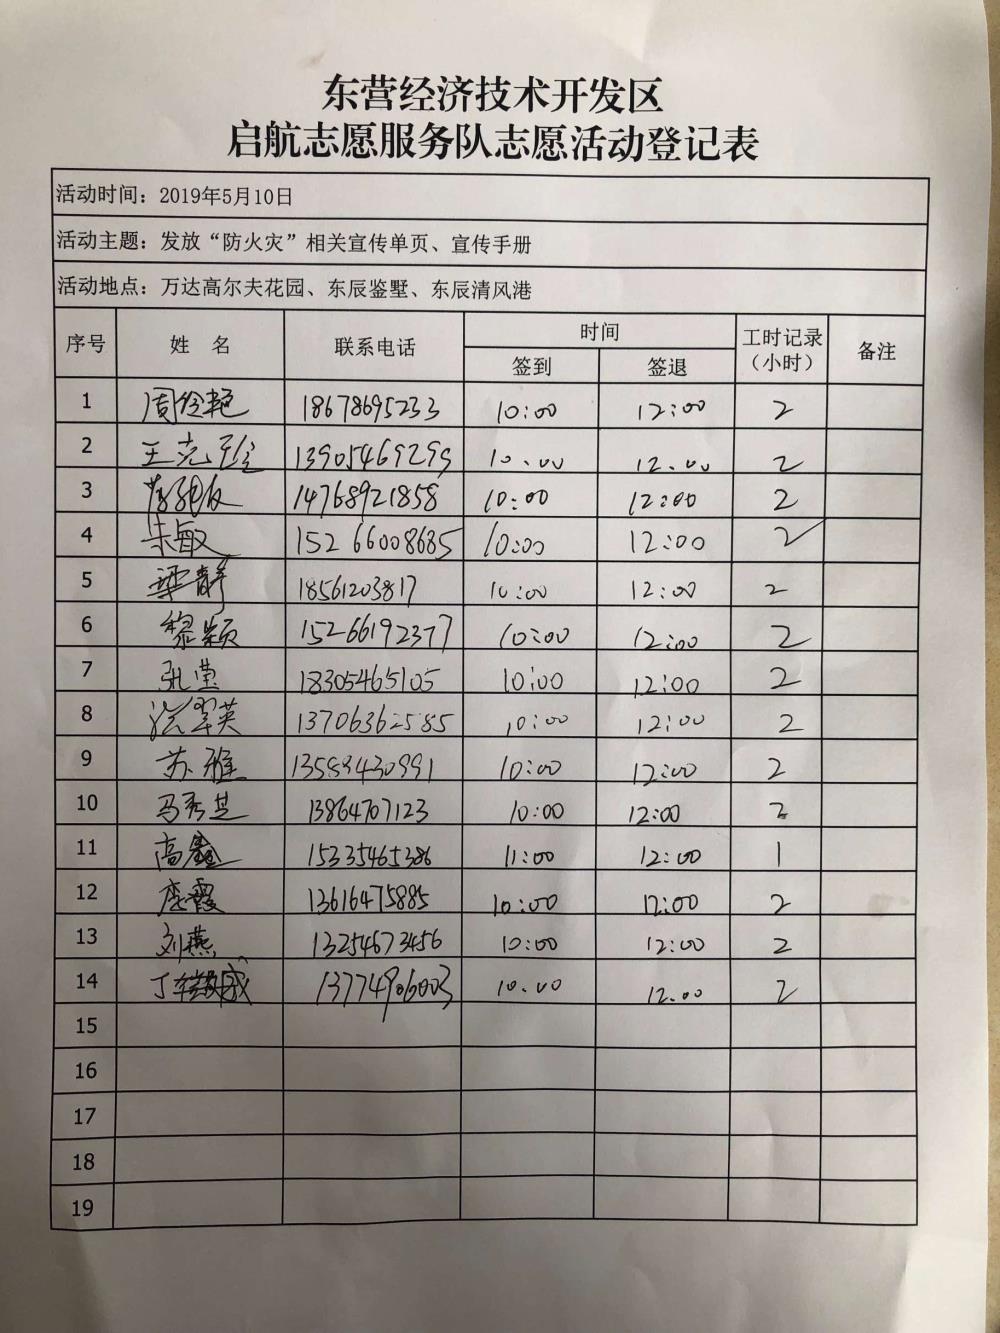 东营经济技术开发区
启航志愿服务队志愿活动登记表
活动时间：2019年5月10日
活动主题：发放“防火灾”相关宣传单页、宣传手册
活动地点：万达高尔夫花园、东辰鉴墅、东辰清风港
序号 姓 名 联系电话 时间 工时记录（小时） 备注
签到 签退
1 周伶艳 18678695233 10:00 12:00 2
2 13905469295 10.00 12.00 2
3 14768921858 10:00 12:00 2
4 朱敏 15266008685 10:00 12:00 2
5 梁静 18561203817 10:00 12:00 2
6 黎颖 15266192377 10:00 12:00 2
7 张莹 18305465105 10:00 12:00 2
8 翠英 13706362585 10:00 12:00 2
9 苏雅 13589430991 10:00 12:00 2
10 马秀芝 13864707123 10:00 12:00 2
11 高鑫 15335465386 11:00 12:00 1
12 唐霞 13616475885 10:00 12:00 2
13 刘燕 13254673456 10:00 12:00 2
14 13774906003 10.00 12.00 2
15
16
17
18
19